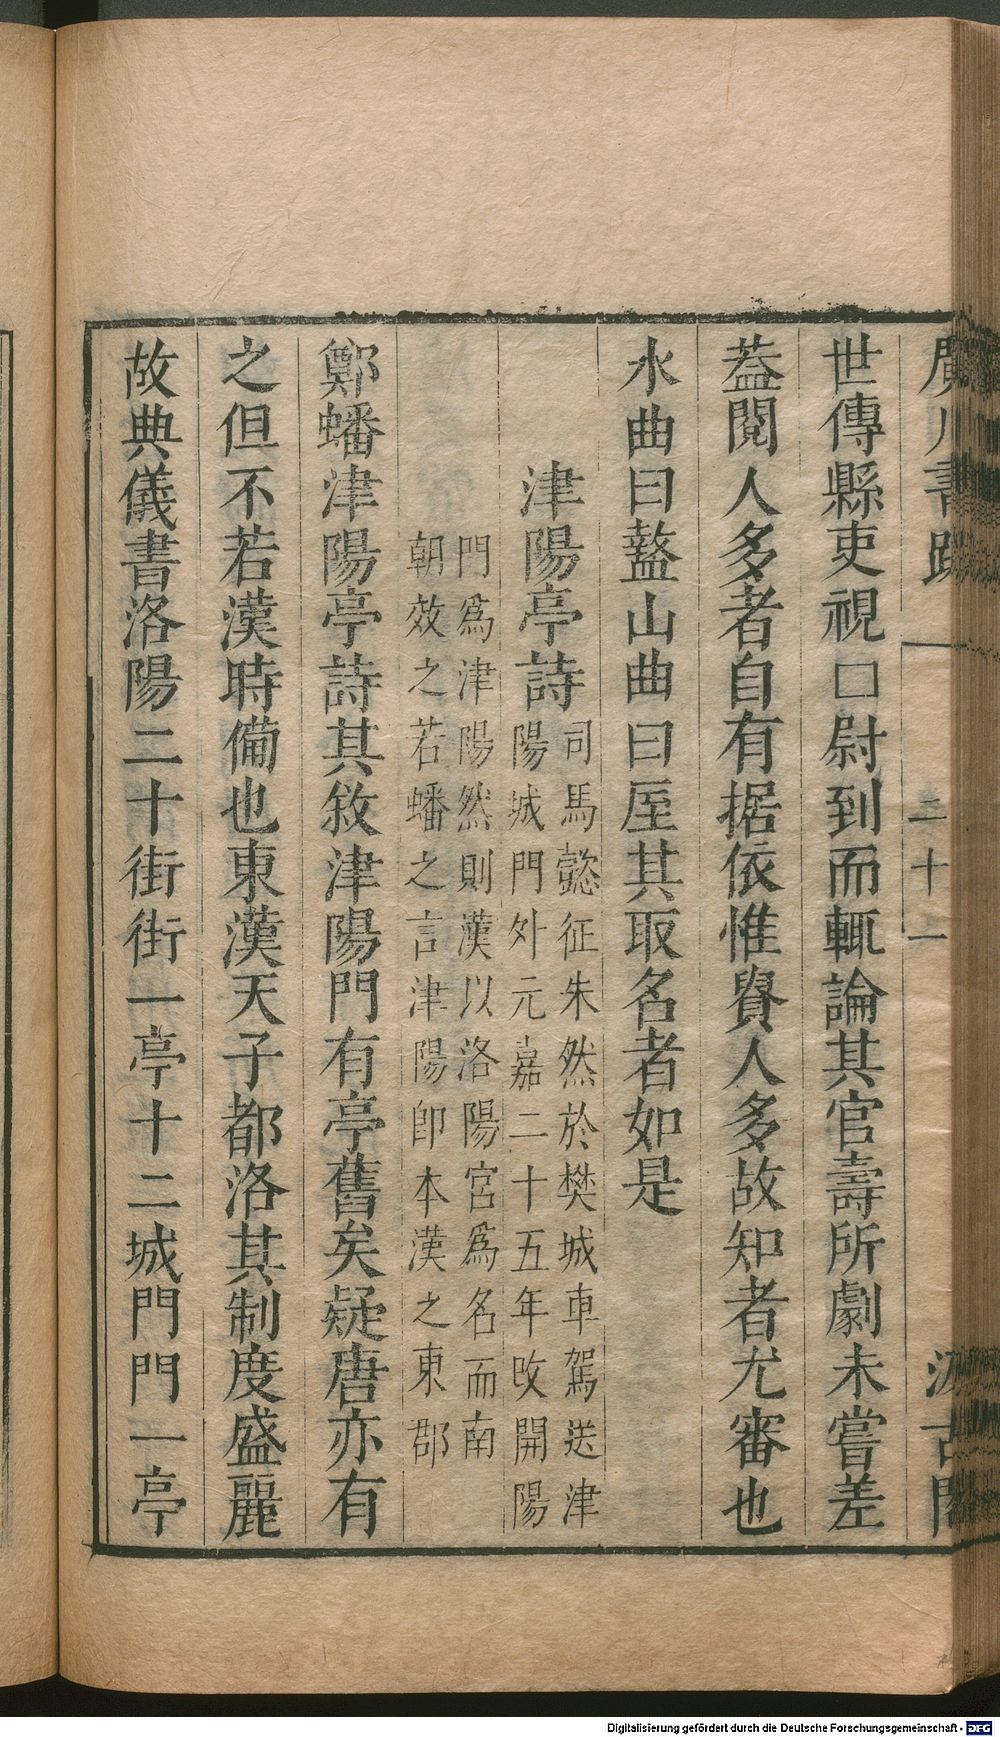 廣川書跋 二十一 汲古閣
世傳縣吏視□尉到而輒論其官壽所劇未嘗差
葢閱人多者自有据依惟貲人多故知者尤審也
水曲曰盩山曲曰厔其取名者如是
津陽亭詩司馬懿征朱然於樊城車駕送津
陽城門外元嘉二十五年改開陽
門爲津陽然則漢以洛陽宮爲名而南
朝效之若蟠之言津陽卽本漢之東都
鄭蟠津陽亭詩其敘津陽門有亭舊矣疑唐亦有
之但不若漢時備也東漢天子都洛其制度盛麗
故典儀書洛陽二十街街一亭十二城門門一亭
Digitalisierung gefördert durch die Deutsche Forschungsgemeinschaft - DFG